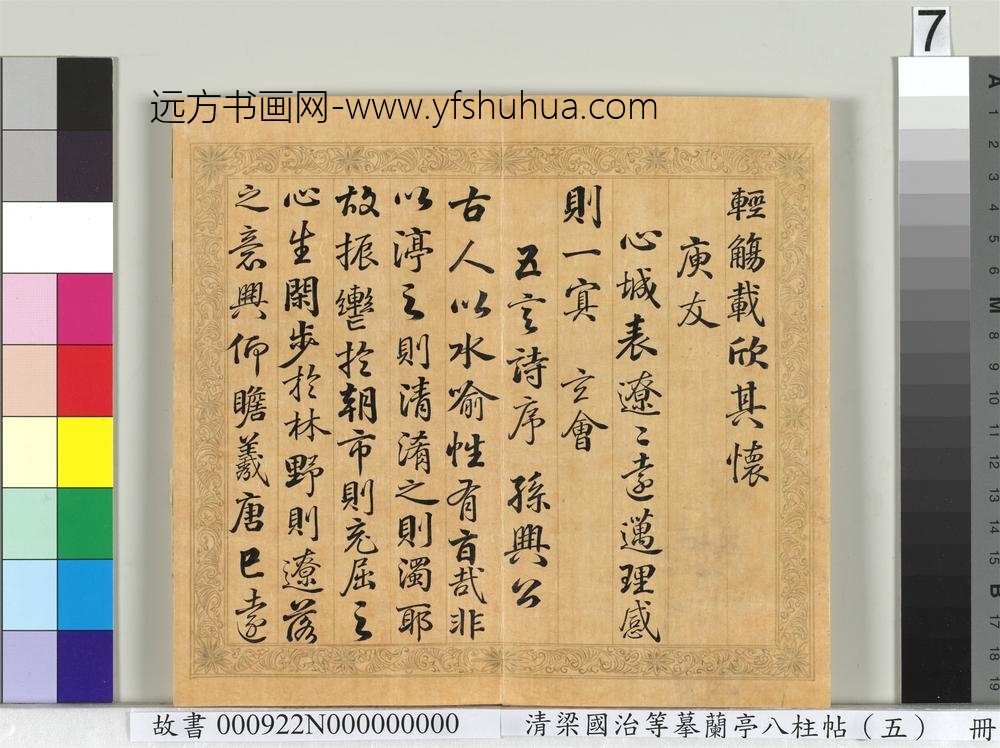 7
远方书画网-www.yfshuhua.com
輕觴載欣其懷
庾友
心城表遼〻遠邁理感
則一冥 玄會
五言詩序 孫興公
古人以水喻性有旨哉非
以渟之則清淆之則濁耶
故振轡於朝市則充屈之
心生閑步於林野則遼落
之意興仰瞻羲唐已遠
A 1 2 3 4 5 6 M 8 9 10 11 12 13 14 15 B 17 18 19
故書 000922N000000000
清梁國治等摹蘭亭八柱帖（五） 冊